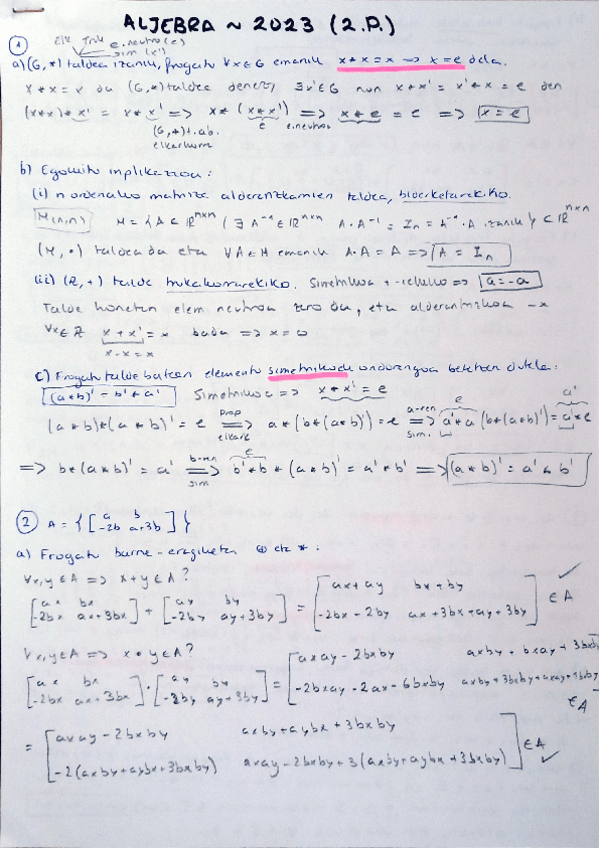 ALJEBRA ~ 2023 (2.P.)
① Elk. Truk e.neutro (e)
sim (x')
a) (G, *) taldea izanik, frogatu ∀x∈G emanik x * x = x => x = e dela.
x * x = x da (G, *) taldea denez, ∃x'∈G non x * x' = x' * x = e den
(x * x) * x' = x * x' => x * (x * x') => x * e = e => x = e
(G, *) t.ab. e e.neutroa
elkarkorra
b) Egokitu inplikazioa:
(i) n ordenako matrize alderanzkarrien taldea, biderketarekiko.
M(n,n) M = {A ∈ ℝⁿˣⁿ ( ∃ A⁻¹ ∈ ℝⁿˣⁿ A·A⁻¹ = Iₙ = A⁻¹·A izanik} ⊂ ℝⁿˣⁿ
(M, ·) taldea da eta ∀A∈M emanik A·A = A => A = Iₙ
(ii) (ℝ, +) talde trukakorrarekiko. Simetrikoa +-rekiko => a = -a
Talde honetan elem. neutroa zero da, eta alderantzizkoa -x
∀x∈ℝ x + x' = x bada => x = 0
x - x = x
c) Frogatu talde batean elementu simetrikoek ondorengoa betetzen dutela:
(a * b)' = b' * a' Simetrikoa => x * x' = e
(a * b) * (a * b)' = e => a * (b * (a * b)') = e => a' * a * (b * (a * b)') = a' * e
Prop elkark a-ren sim. e a'
=> b * (a * b)' = a' => b' * b * (a * b)' = a' * b' => (a * b)' = a' * b'
b-ren sim e
② A = {[a b
-2b a+3b]}
a) Frogatu barne-eragiketak ⊕ eta *:
∀x,y ∈ A => x + y ∈ A?
[ax bx
-2bx ax+3bx] + [ay by
-2by ay+3by] = [ax+ay bx+by
-2bx-2by ax+3bx+ay+3by] ∈ A ✓
∀x,y ∈ A => x • y ∈ A?
[ax bx
-2bx ax+3bx] · [ay by
-2by ay+3by] = [axay - 2bxby axby + bxay + 3bxby
-2bxay - 2ax - 6bxby axby + 3bxby + axay +
∈ A
= [axay - 2bxby axby + aybx + 3bxby
-2(axby + aybx + 3bxby) axay - 2bxby + 3(axby + aybx + 3bxby)] ∈ A ✓